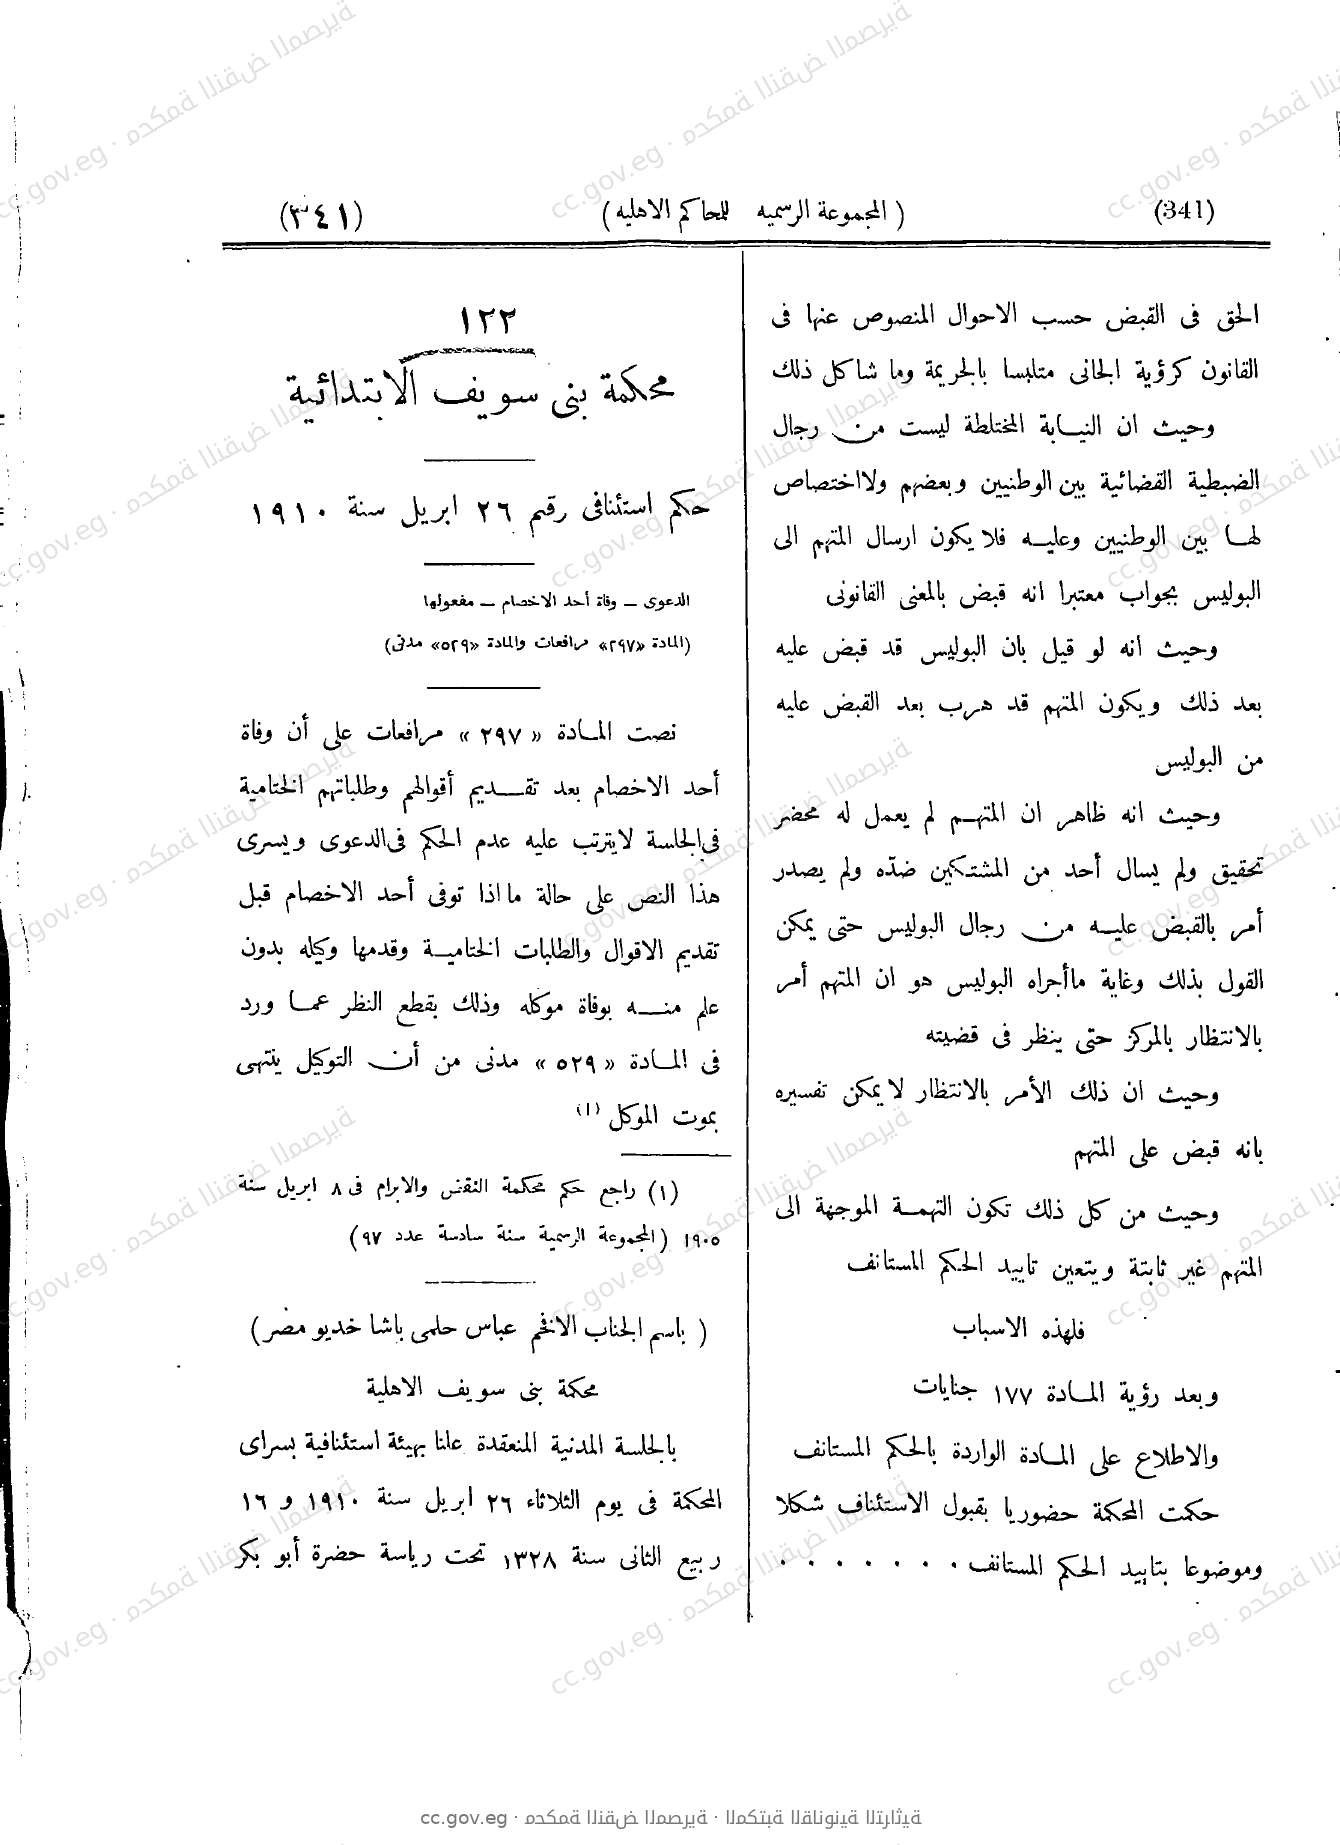 (341) ( المجموعة الرسميه للمحاكم الاهليه ) (٣٤١)
الحق فى القبض حسب الاحوال المنصوص عنها فى
القانون كرؤية الجانى متلبسا بالجريمة وما شاكل ذلك
وحيث ان النيابة المختلطة ليست من رجال
الضبطية القضائية بين الوطنيين وبعضهم ولااختصاص
لها بين الوطنيين وعليه فلا يكون ارسال المتهم الى
البوليس بجواب معتبرا انه قبض بالمعنى القانونى
وحيث انه لو قيل بان البوليس قد قبض عليه
بعد ذلك ويكون المتهم قد هرب بعد القبض عليه
من البوليس
وحيث انه ظاهر ان المتهم لم يعمل له محضر
تحقيق ولم يسال أحد من المشتكين ضدّه ولم يصدر
أمر بالقبض عليه من رجال البوليس حتى يمكن
القول بذلك وغاية ماأجراه البوليس هو ان المتهم أمر
بالانتظار بالمركز حتى ينظر فى قضيته
وحيث ان ذلك الأمر بالانتظار لايمكن تفسيره
بانه قبض على المتهم
وحيث من كل ذلك تكون التهمة الموجهة الى
المتهم غير ثابتة ويتعين تاييد الحكم المستانف
فلهذه الاسباب
وبعد رؤية المادة ١٧٧ جنايات
والاطلاع على المادة الواردة بالحكم المستانف
حكمت المحكمة حضوريا بقبول الاستئناف شكلا
وموضوعا بتاييد الحكم المستانف . . . . . . .
١٢٢
محكمة بنى سويف الابتدائية
حكم استئنافى رقيم ٢٦ ابريل سنة ١٩١٠
الدعوى – وفاة أحد الاخصام – مفعولها
(المادة «٢٩٧» مرافعات والمادة «٥٢٩» مدنى)
نصت المادة « ٢٩٧ » مرافعات على أن وفاة
أحد الاخصام بعد تقديم أقوالهم وطلباتهم الختامية
فى الجلسة لايترتب عليه عدم الحكم فى الدعوى ويسرى
هذا النص على حالة ما اذا توفى أحد الاخصام قبل
تقديم الاقوال والطلبات الختامية وقدمها وكيله بدون
علم منه بوفاة موكله وذلك بقطع النظر عما ورد
فى المادة « ٥٢٩ » مدنى من أن التوكيل ينتهى
بموت الموكل (١)
(١) راجع حكم محكمة النقض والابرام فى ٨ ابريل سنة
١٩٠٥ (المجموعة الرسمية سنة سادسة عدد ٩٧)
( باسم الجناب الافخم عباس حلمى باشا خديو مصر )
محكمة بنى سويف الاهلية
بالجلسة المدنية المنعقدة علنا بهيئة استئنافية بسراى
المحكمة فى يوم الثلاثاء ٢٦ ابريل سنة ١٩١٠ و ١٦
ربيع الثانى سنة ١٣٢٨ تحت رياسة حضرة أبو بكر
cc.gov.eg · محكمة النقض المصرية · المكتبة القانونية التراثية